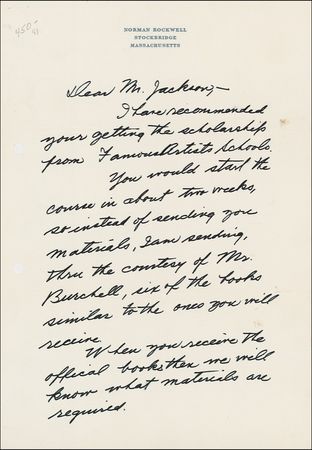 450-
41
NORMAN ROCKWELL
STOCKBRIDGE
MASSACHUSETTS
Dear Mr. Jackson,-
I have recommended
your getting the scholarship
from Famous Artists Schools.
You would start the
course in about two weeks,
so instead of sending you
materials, I am sending,
thru the courtesy of Mr.
Burchell, six of the books
similar to the ones you will
receive.
When you receive the
offical books then we will
know what materials are
required.